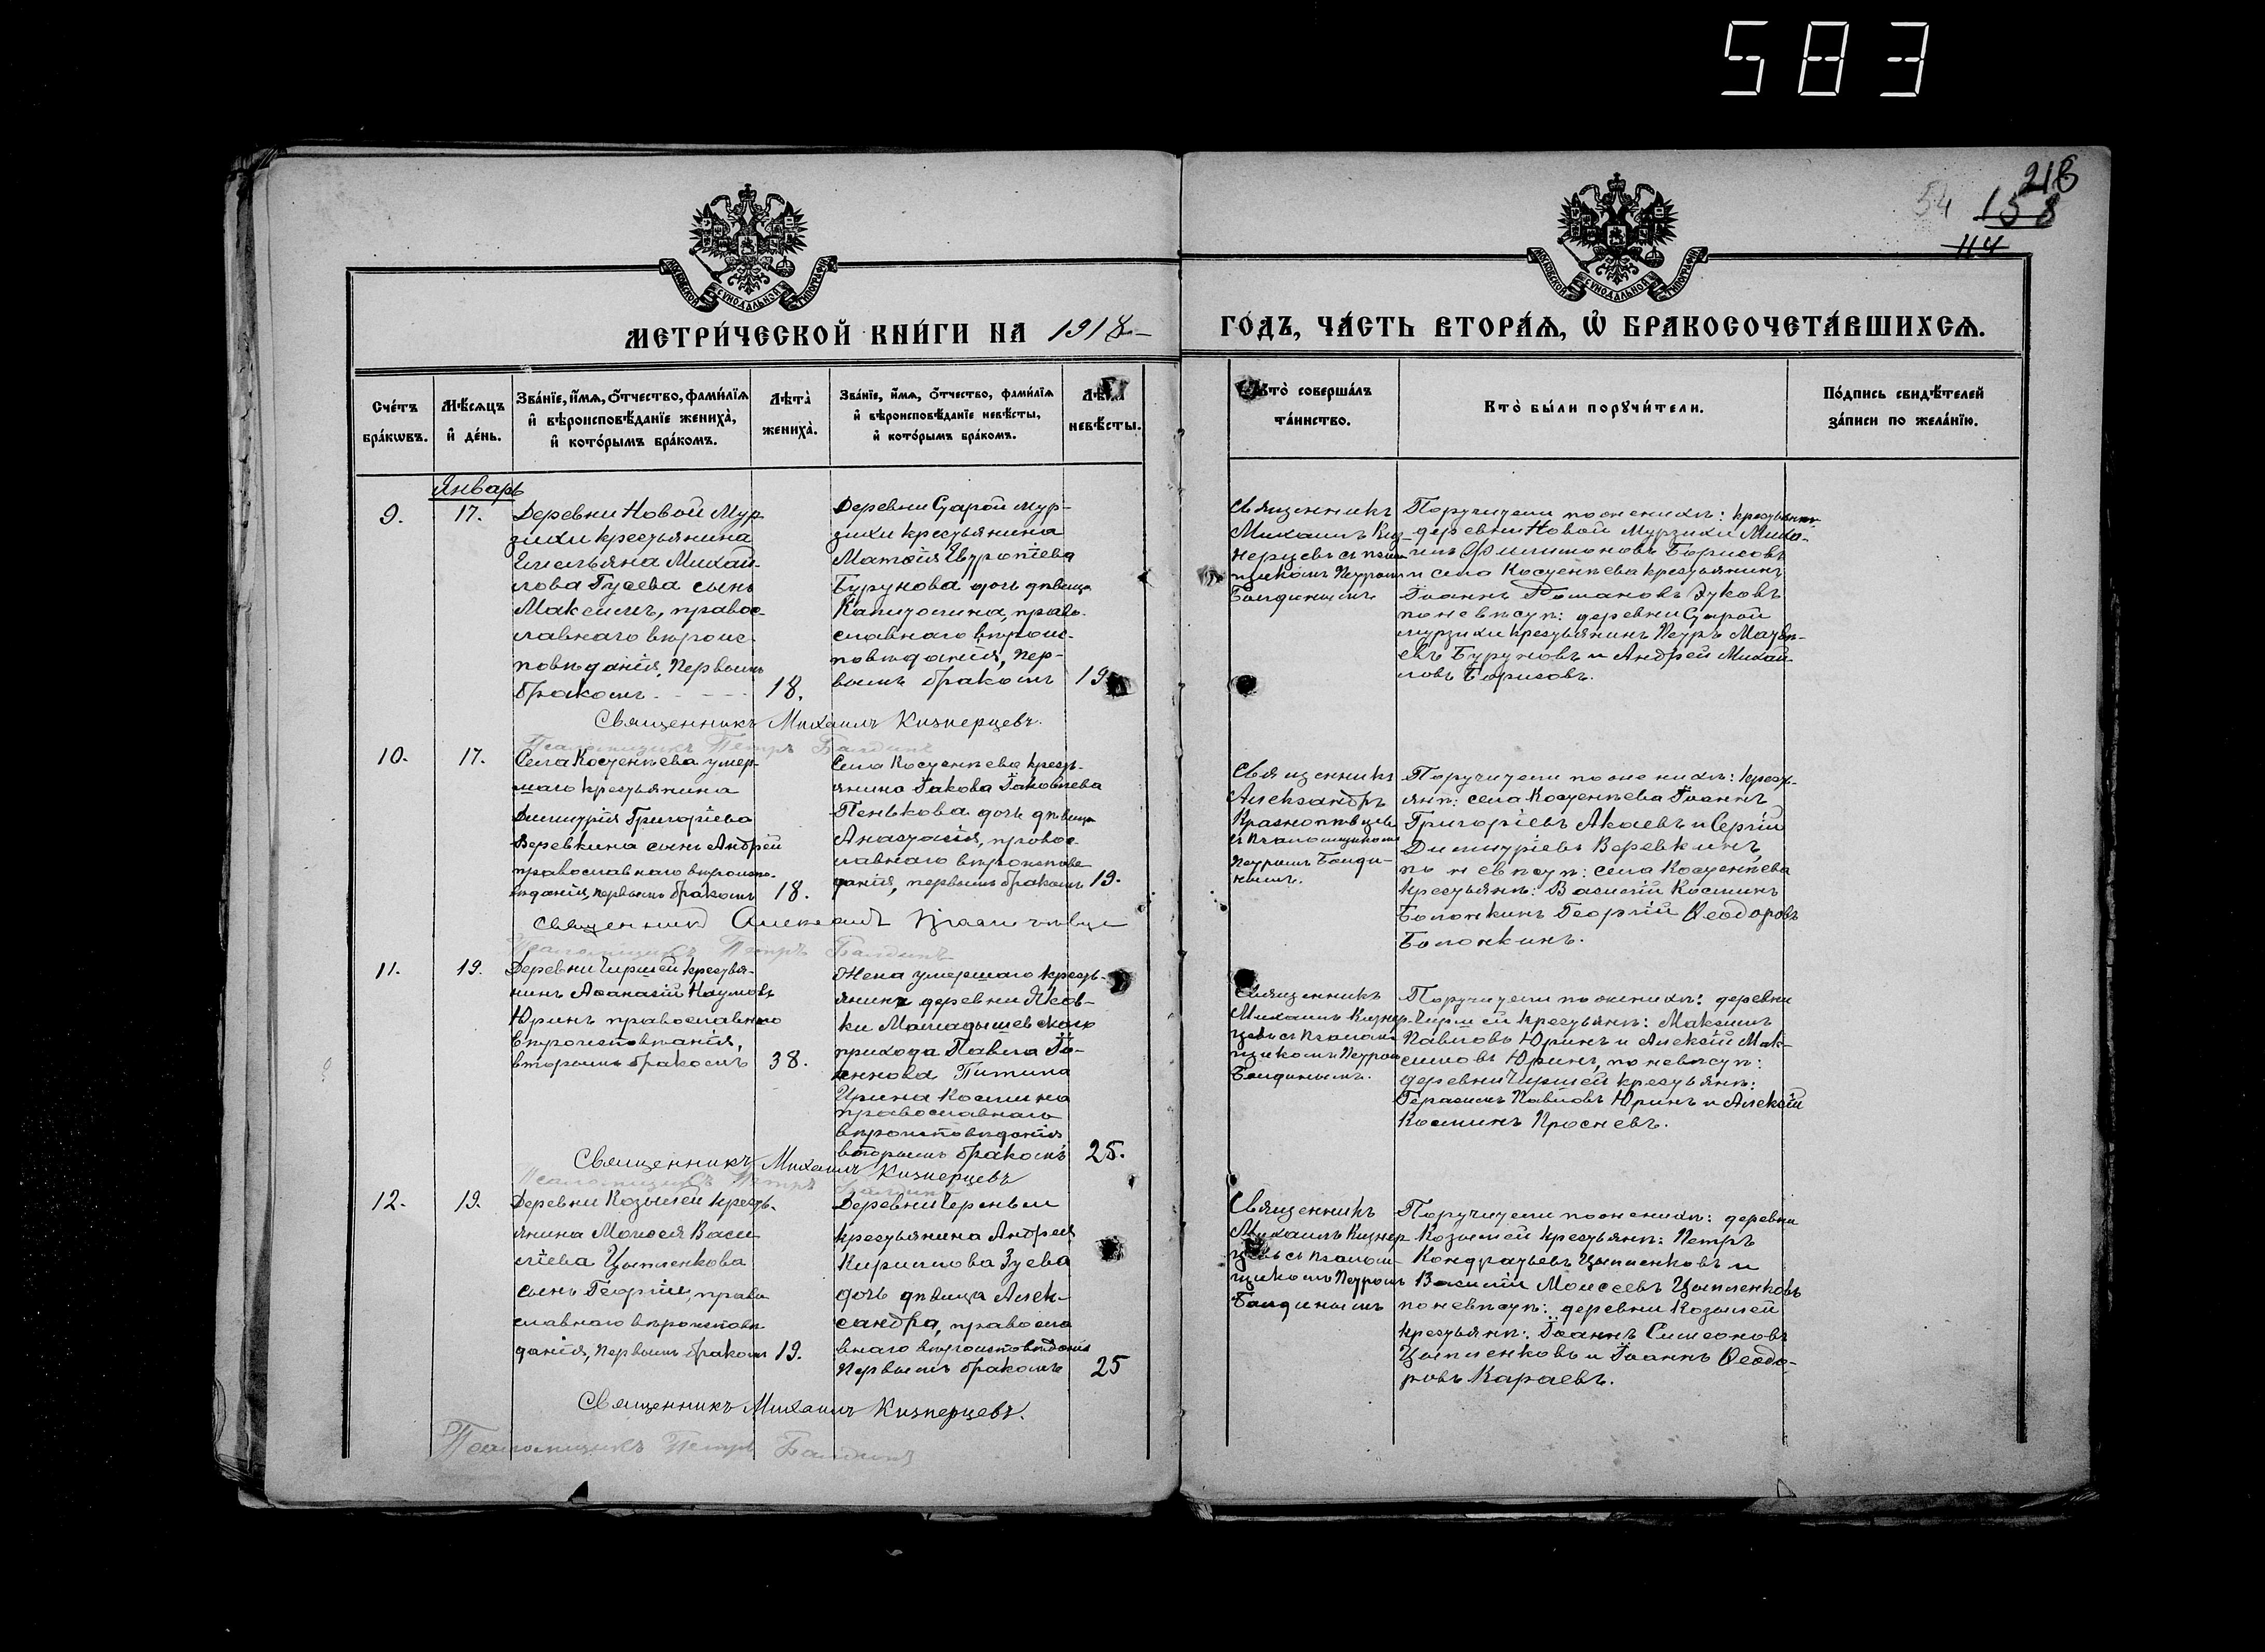 583
54
218
158
114
МОСКОВСКОЙ СѴНОДАЛЬНОЙ ТИПОГРАФІИ
МОСКОВСКОЙ СѴНОДАЛЬНОЙ ТИПОГРАФІИ
МЕТРИ́ЧЕСКОЙ КНИ́ГИ НА 1918
ГО́ДЪ, ЧА́СТЬ ВТОРА́Ѧ, Ѽ БРАКОСОЧЕТА́ВШИХСѦ.
Сче́тъ бра́кѡвъ.
Мѣ́сяцъ и҆ де́нь.
Зва́нїе, и҆́мѧ, Ѻ҆́тчество, фами́лїѧ и҆ вѣроисповѣ́данїе жениха̀, и҆ кото́рымъ бра́комъ.
Лѣта̀ жениха̀.
Зва́нїе, и҆́мѧ, Ѻ҆́тчество, фами́лїѧ и҆ вѣроисповѣ́данїе невѣ́сты, и҆ кото́рымъ бра́комъ.
Лѣта̀ невѣ́сты.
Кто̀ соверша́лъ та́инство.
Кто̀ бы́ли порꙋчи́тели.
По́дпись свидѣ́телей за́писи по жела́нїю.
Январь
9.
17.
Деревни Новой Мур-
зихи крестьянина
Емельяна Михай-
лова Гусева сынъ
Максимъ, правос-
лавнаго вѣроис-
повѣданія, первымъ
бракомъ
18.
Деревни Старой Мур-
зихи крестьянина
Матѳія Евтропіева
Бурунова дочь дѣвица
Капитолина, право-
славнаго вѣроис-
повѣданія, пер-
вымъ бракомъ
19
Священникъ
Михаилъ Киз-
нерцевъ съ псалом-
щикомъ Петромъ
Болдинымъ
Поручители по женихѣ: крестьянинъ
деревни Новой Мурзихи Миха-
илъ Филимоновъ Борисовъ
и села Костенѣева крестьянинъ
Іоаннъ Романовъ Зуковъ
по невѣстѣ: деревни Старой
Мурзихи крестьянинъ Петръ Матвѣ-
евъ Буруновъ и Андрей Михай-
ловъ Борисовъ.
Священникъ Михаилъ Кизнерцевъ.
Псаломщикъ Петръ Балдинъ
10.
17.
Села Костенѣева умер-
шаго крестьянина
Димитрія Григоріева
Веревкина сынъ Андрей
православнаго вѣроиспо-
вѣданія, первымъ бракомъ
18.
Села Костенѣева кресть-
янина Іакова Іаковлева
Пенькова дочь дѣвица
Анастасія, правос-
лавнаго вѣроисповѣ
данія, первымъ бракомъ
19.
Священникъ
Александръ
Краснопѣвцевъ
съ псаломщикомъ
Петромъ Болди-
нымъ.
Поручители по женихѣ: кресть-
янѣ: села Костенѣева Іоаннъ
Григоріевъ Акаевъ и Сергій
Димитріевъ Веревкинъ,
по невѣстѣ: села Костенѣева
крестьянѣ: Василій Косминъ
Болонкинъ Георгій Ѳеодоровъ
Болонкинъ.
Псаломщикъ Петръ Балдинъ
11.
19.
Деревни Чиршей крестья-
нинъ Аѳанасій Наумовъ
Юринъ православнаго
вѣроисповѣданія,
вторымъ бракомъ
38.
Жена умершаго кресть-
янина деревни Яков-
ки Мамадышевскаго
прихода Павла Іо-
аннова Питина
Ирина Космина
православнаго
вѣроисповѣданія
вторымъ бракомъ
25.
Священникъ
Михаилъ Кизнер-
цевъ съ псалом-
щикомъ Петромъ
Болдинымъ.
Поручители по женихѣ: деревни
Чиршей крестьянѣ: Максимъ
Павловъ Юринъ и Алексій Мак-
симовъ Юринъ, по невѣстѣ:
деревни Чиршей крестьянѣ:
Герасимъ Павловъ Юринъ и Алексій
Косминъ Просневъ.
Священникъ Михаилъ Кизнерцевъ
Псаломщикъ Петръ Балдинъ
12.
19.
Деревни Козылей кресть-
янина Моисея Васи-
ліева Цыпленкова
сынъ Георгій, право
славнаго вѣроисповѣ
данія, первымъ бракомъ
19.
крестьянина Андрея
Кириллова Зуева
дочь дѣвица Алек-
сандра, правосла
внаго вѣроисповѣданія
первымъ бракомъ
25
Священникъ
Михаилъ Кизнер-
цевъ съ псалом-
щикомъ Петромъ
Болдинымъ
Поручители по женихѣ: деревни
Козылей крестьянѣ: Петръ
Кондратьевъ Цыпленковъ и
Василій Моисеевъ Цыпленковъ
по невѣстѣ: деревни Козылей
крестьянѣ: Іоаннъ Симеоновъ
Цыпленковъ и Іоаннъ Ѳеодо-
ровъ Караевъ.
Священникъ Михаилъ Кизнерцевъ.
Псаломщикъ Петръ Балдинъ